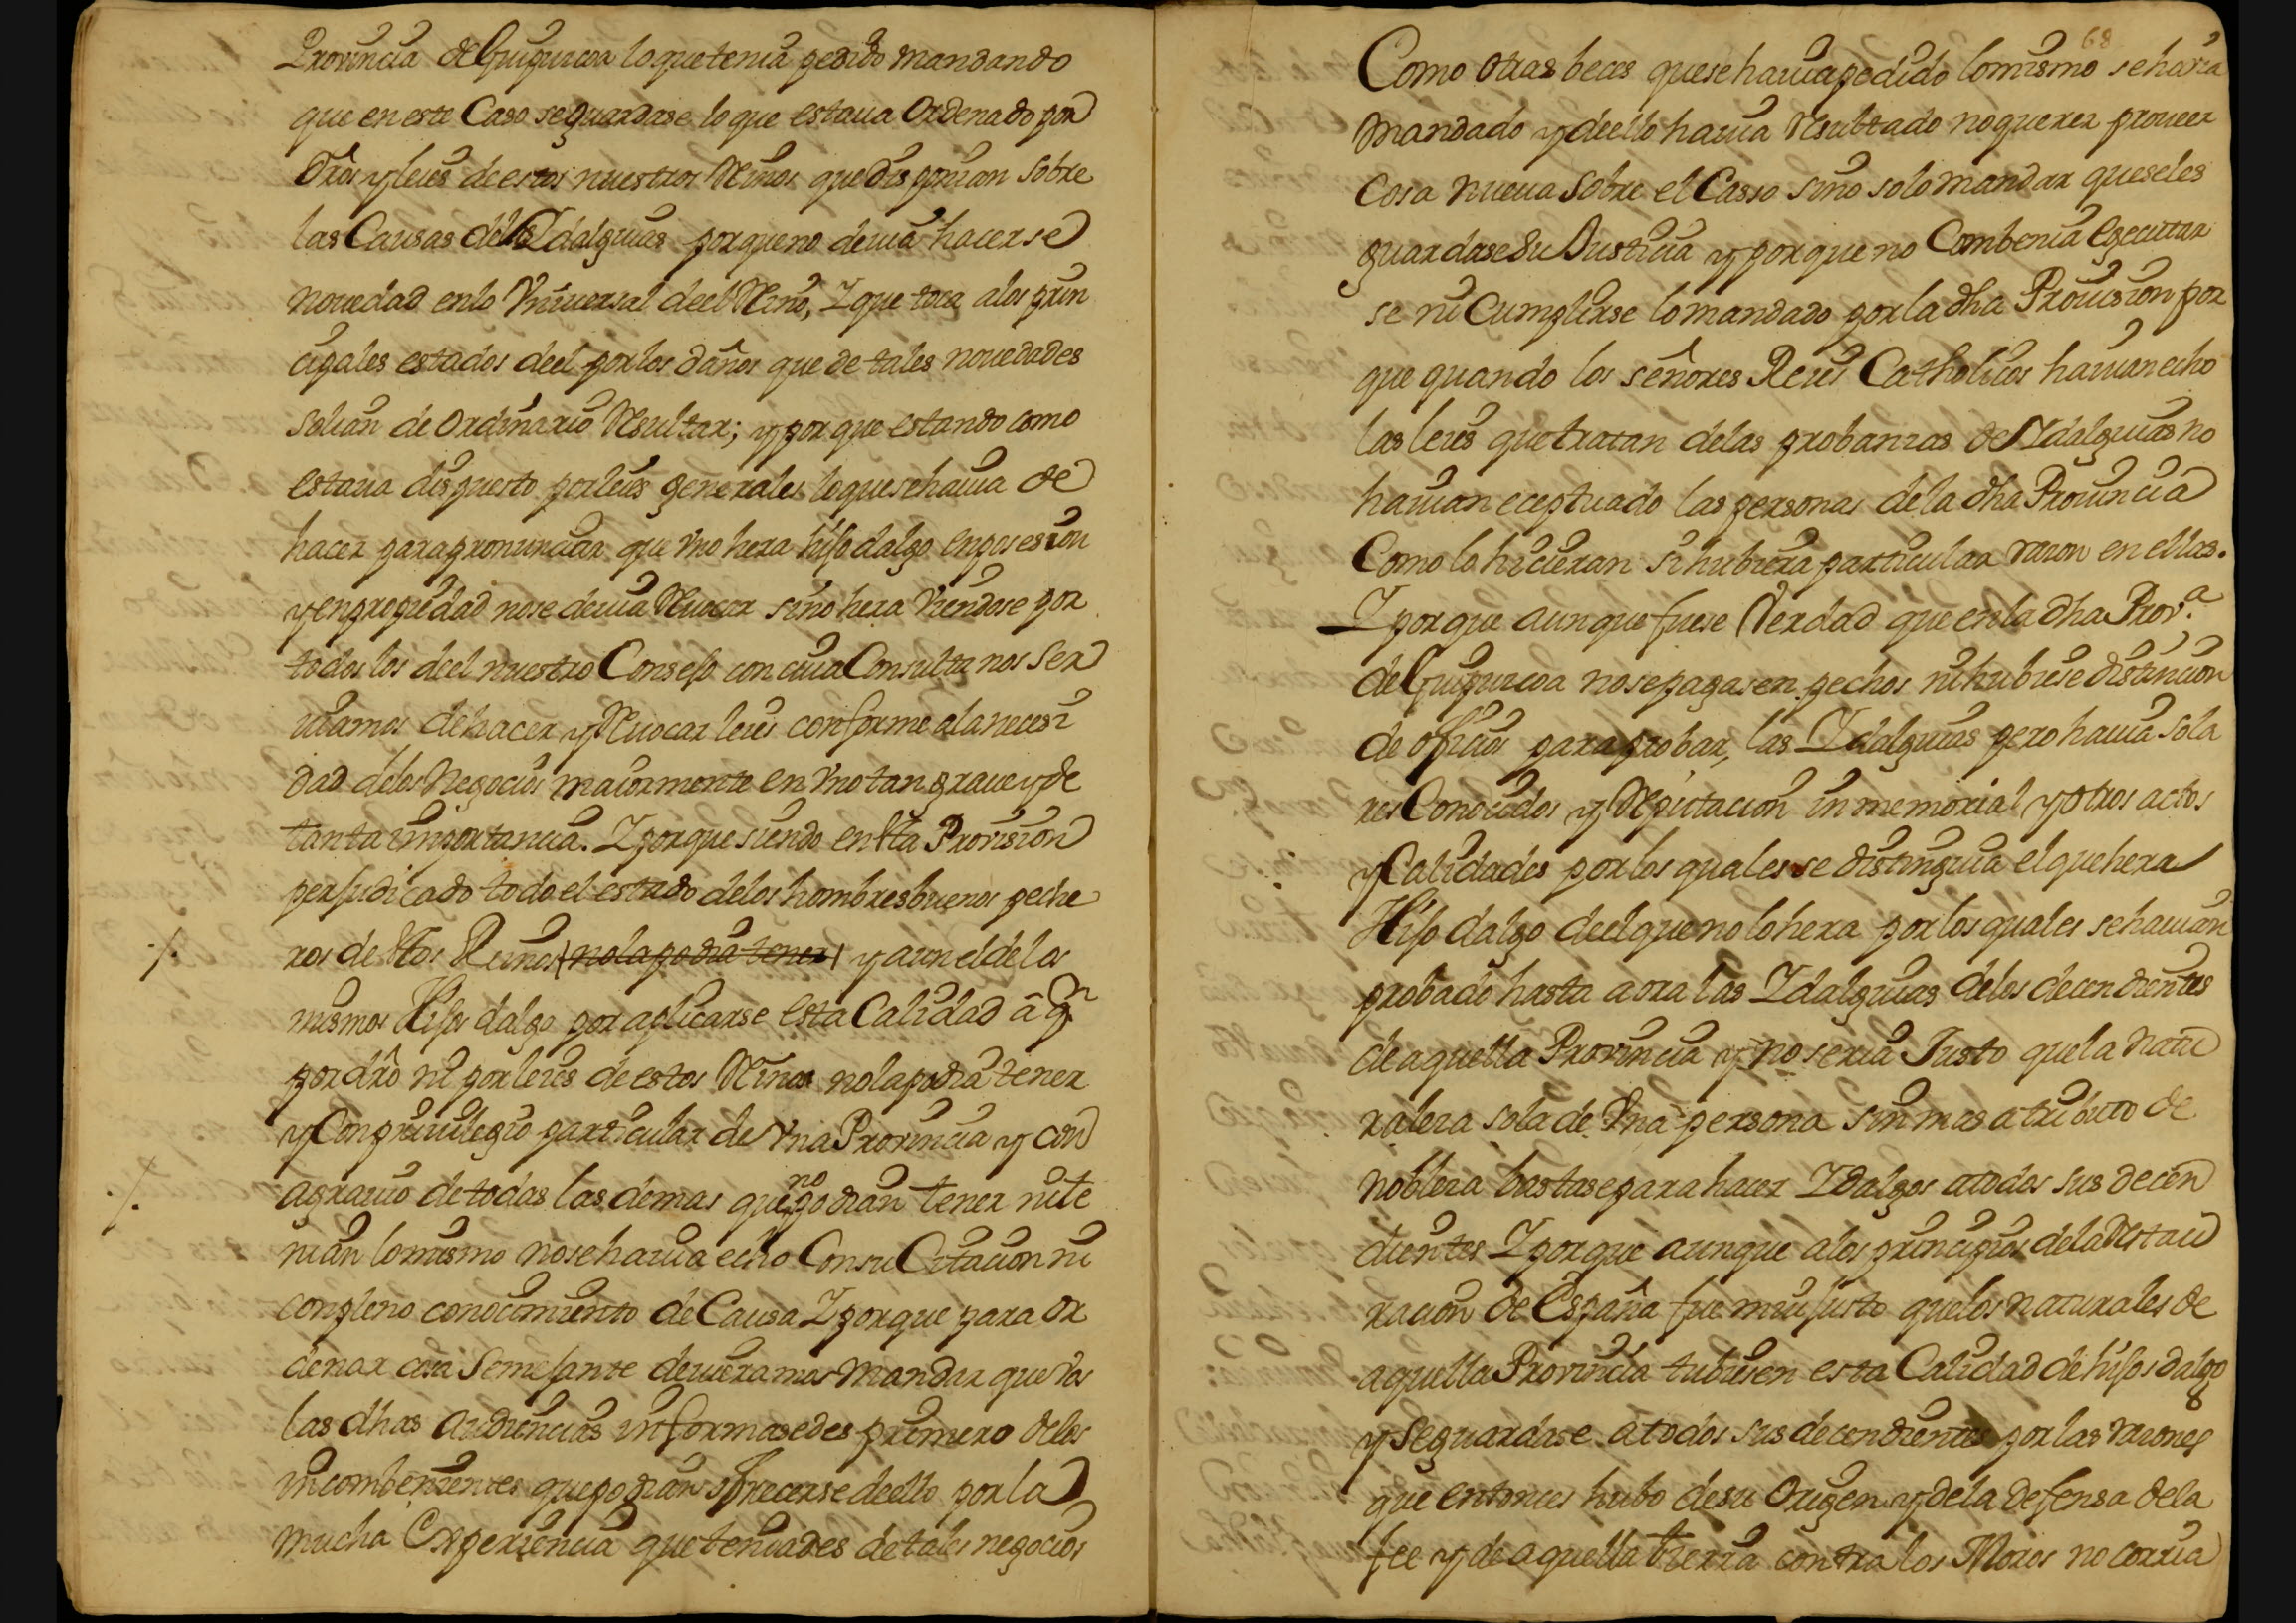 Provincia de Guipuzcoa lo que tenia pedido mandando
que en este Caso se guardase lo que estaua Ordenado por
Dros y leies de estos nuestros Reinos que disponian sobre
las Causas de las Idalguias porque no deuia hacerse
nouedad en lo Vniuersal de el Reino, Y que toca a los prin
cipales estados de el por los daños que de tales nouedades
solian de Ordinario Resultar; y porque estando como
estaua dispuesto por leies generales lo que se hauia de
hacer para pronunciar que Vno hera hijo dalgo en posesion
y en propiedad no se deuia Reuocar sino hera Viendose por
todos los de el nuestro Consejo con cuia Consulta nos Ser
uiamos de hacer y Reuocar leies conforme a la necesi
dad de los Negocios maiormente en Vno tan graue y de
tanta importancia. Y porque siendo en Vta Provision
perjudicado todo el estado de los hombres buenos peche
ros de Vtos Reinos (no la podia tener) y aun el de los
mismos Hijos dalgo por aplicarse esta Calidad â qn
por dro ni por leies de estos Reinos no la podia tener
y Con priuilegio particular de Vna Provincia y con
agrauio de todas las demas que no podian tener ni te
nian lo mismo no se hauia echo Con su Citacion ni
con pleno conocimiento de Causa Y porque para or
denar cosa Semejante deuieramos Mandar que Vos
las dhas Audiencias informasedes primero de los
incombenientes que podian ofrecerse de ello por la
mucha Experiencia que teniades de tales negocios
68
Como otras beces que se hauia pedido lo mismo se havia
Mandado y de ello hauia Resultado no querer proueer
Cosa nueua Sobre el Casso sino solo mandar que se les
guardase Su Justicia y porque no Combenia Egecutar
se ni Cumplirse lo mandado por la dha Prouision por
que quando los señores Reies Catholicos hauian echo
las leies que tratan de las probanzas de Ydalguias no
hauian eceptuado las personas de la dha Prouincia
Como lo hicieran si hubiera particular razon en ellas.
Y porque aunque fuese Verdad que en la dha Prova.
de Guipuzcoa no se pagasen pechos ni hubiese distincion
de oficios para probar, las Ydalguias pero hauia Sola
res Conocidos y Reputacion inmemorial y otros actos
y Calidades por los quales se distinguia el que hera
Hijo dalgo de el que no lo hera por los quales se hauian
probado hasta aora las Ydalguias de los decendientes
de aquella Provincia y no seria Justo que la natu
raleza sola de Vna persona sin mas atributo de
nobleza bastase para hacer Ydalgos a todos sus decen
dientes Y porque aunque a los principios de la Restau
racion de España fue mui justo que los naturales de
aquella Provincia tubiesen esta Calidad de hijos dalgo
y Se guardase a todos sus decendientes por las razones
que entonces hubo de su Origen y de la defensa de la
fee y de aquella tierra contra los Moros no corria